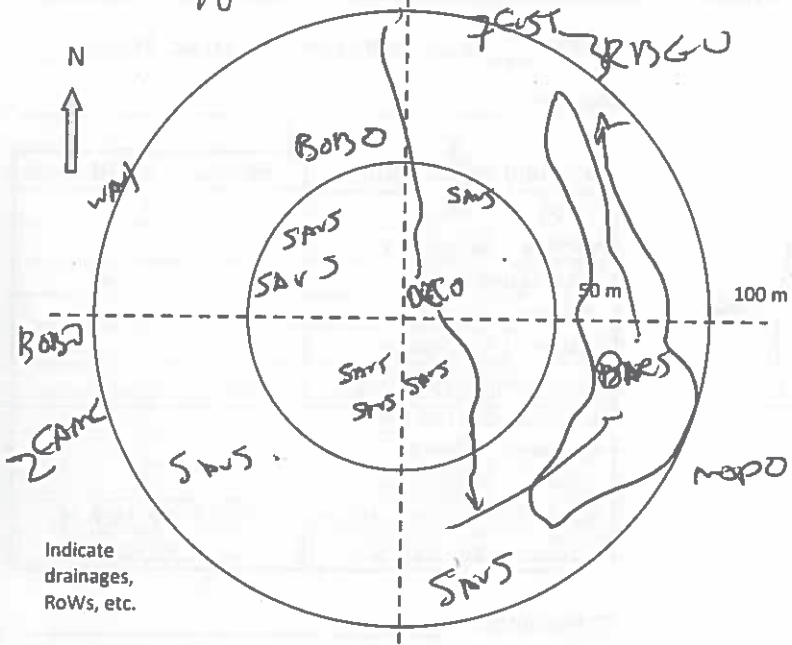 7 CUSI
RBGU
N
BOBO
WAX
SAVS
SAVS
SAVS
DECO
50 m
100 m
BOBO
BARS
SAVS
SAVS
SAVS
2 CAMC
SAVS
MOPO
SAVS
Indicate
drainages,
RoWs, etc.